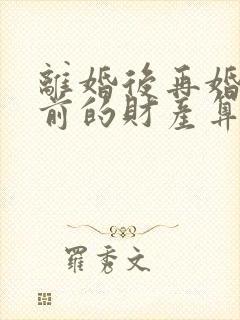 離婚後再婚
前的財產算
羅秀文